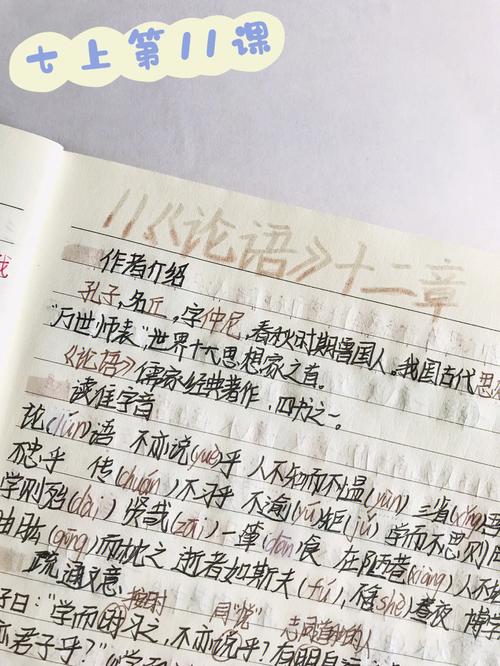 七上第11课
11《论语》十二章
作者介绍
孔子,名丘,字仲尼,春秋时期鲁国人。我国古代思
"万世师表"世界十大思想家之首。
《论语》儒家经典著作,四书之一。
读准字音
论(lún)语 不亦说(yuè)乎 人不知而不愠(yùn) 三省(xǐng)
不忠乎 传(chuán)不习乎 不逾(yú)矩(jǔ) 学而不思则
学则殆(dài) 贤哉(zāi) 一箪(dān)食 在陋巷(xiàng) 人不
曲肱(gōng)而枕之 逝者如斯夫(fú),不舍(shě)昼夜 博学
疏通文意
按时 同"悦" 志同道合的人
子曰:"学而时习之,不亦说乎?有朋自远
亦君子乎?"《学而
我